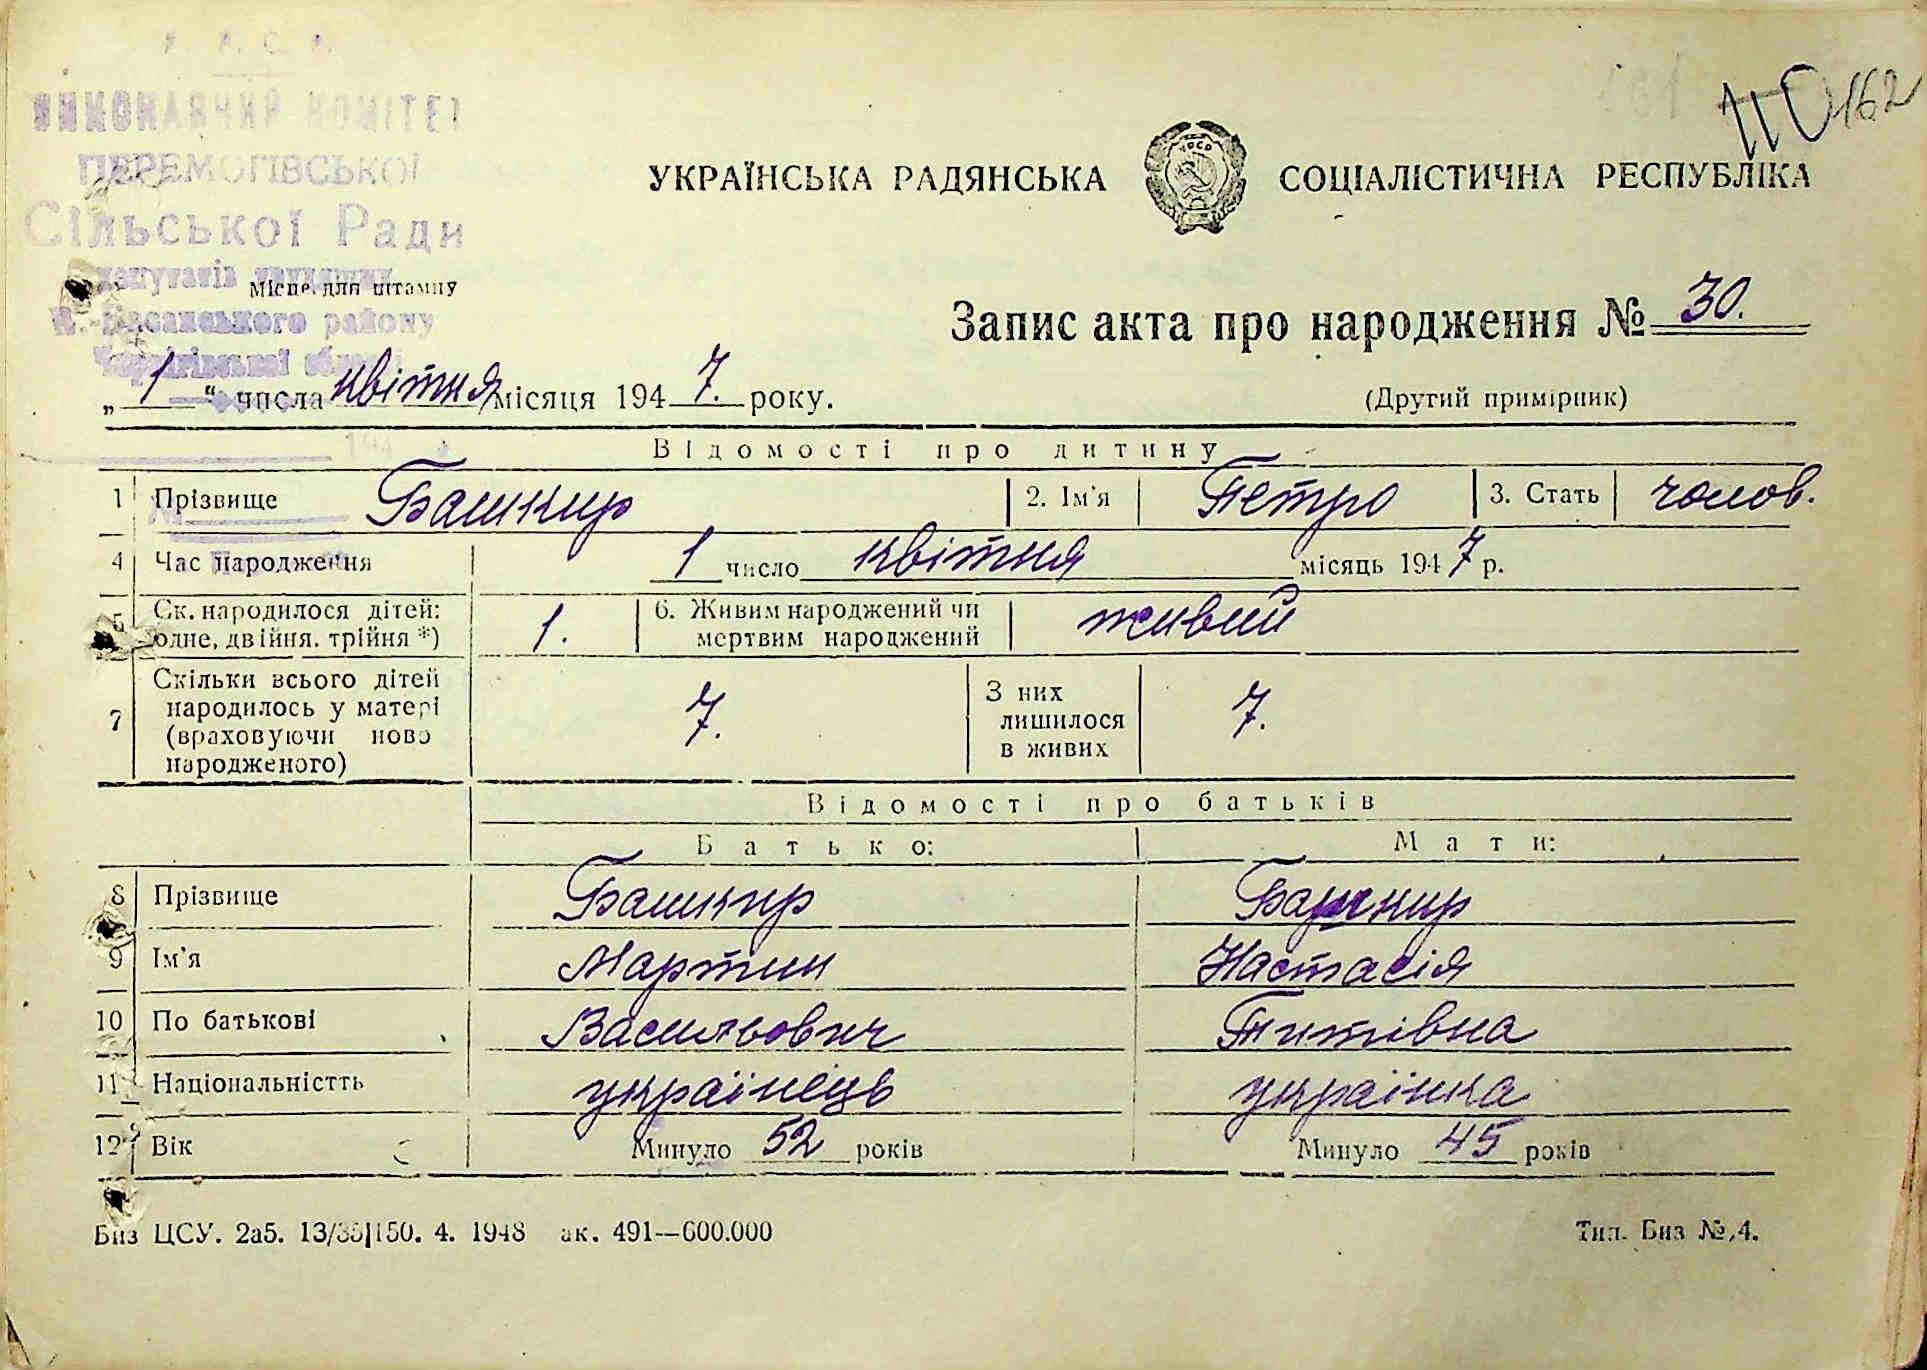 ВИКОНАВЧИЙ КОМІТЕТ
ПЕРЕМОГІВСЬКОЇ
Сільської Ради
депутатів трудящих
Н.-Басанського району
Чернігівської області
110 162
УКРАЇНСЬКА РАДЯНСЬКА СОЦІАЛІСТИЧНА РЕСПУБЛІКА
Місце для штампу
Запис акта про народження № 30.
„ 1 “ числа квітня місяця 1947. року.
(Другий примірник)
Відомості про дитину
1 Прізвище Башкир 2. Ім'я Петро 3. Стать чолов.
4 Час народження 1 число квітня місяць 1947 р.
5 Ск. народилося дітей: одне, двійня, трійня *) 1. 6. Живим народжений чи мертвим народжений живий
7 Скільки всього дітей народилось у матері (враховуючи ново народженого) 7. З них лишилося в живих 7.
Відомості про батьків
Батько: Мати:
8 Прізвище Башкир Башкир
9 Ім'я Мартин Настасія
10 По батькові Васильович Титівна
11 Національністть українець українка
12 Вік Минуло 52 років Минуло 45 років
Биз ЦСУ. 2а5. 13/35|150. 4. 1948 ак. 491—600.000 Тип. Биз №,4.